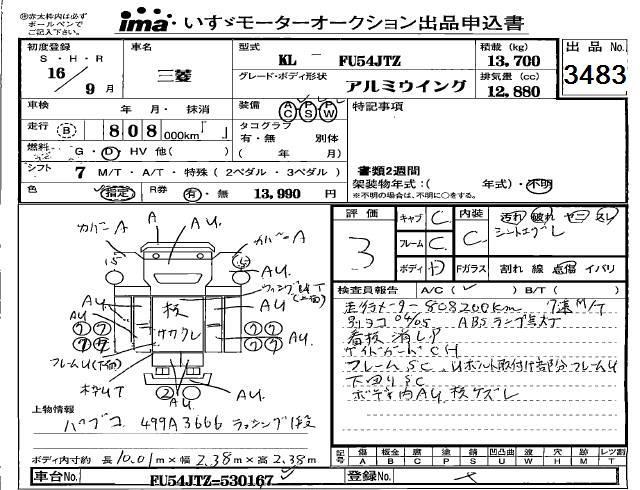 ※赤太枠内は必ず
ボールペンで
ご記入下さい。
ima いすゞモーターオークション出品申込書
初度登録 S・H・R 16 9 月
車名 三菱
型式 KL － FU54JTZ
積載 (kg) 13,700
出品 No. 3483
グレード・ボディ形状 アルミウイング
排気量 (cc) 12,880
車検 年 月・ 抹消
装備 AC PS PW
特記事項
走行 B 808 000km「 」
タコグラフ 有・無 別体 ( 年 月)
燃料 G・D・HV 他( )
シフト 7 M/T・A/T・特殊（2ペダル・3ペダル）
書類2週間
架装物年式：( 年式)・不明
※不明の場合は、不明に○をする。
色 指定 R券 有・無 13,990 円
評価 3
キャブ C
フレーム C
ボディ D
内装 C
汚れ 破れ ヤニ スレ
シートエグレ
Fガラス 割れ 線 点傷 イバリ
検査員報告 A/C( ✓ ) B/T( )
走行メーター808200km 7速M/T
別ヨコ 04/05 ABSランプ点灯
看板消しP
サイドガードCH
フレームSC、Uボルト取付け部分フレームU
下回りSC
ボディ内AU 板ケズレ
カバーA A AU. カバーA
AU
ウィング
AU AU
板
ササクレ
フレームU(下面)
AU.
上物情報
パブコ 499A3666 ラッシング1段
ボディ内寸約 長10.01m×幅2.38m×高2.38m
記号 傷 A 板金 B 腐 C 塗 P 錆 S 凹凸曲 U 波 W 穴 H 跡 M レツ割 T
車台No. FU54JTZ-530167
登録No.